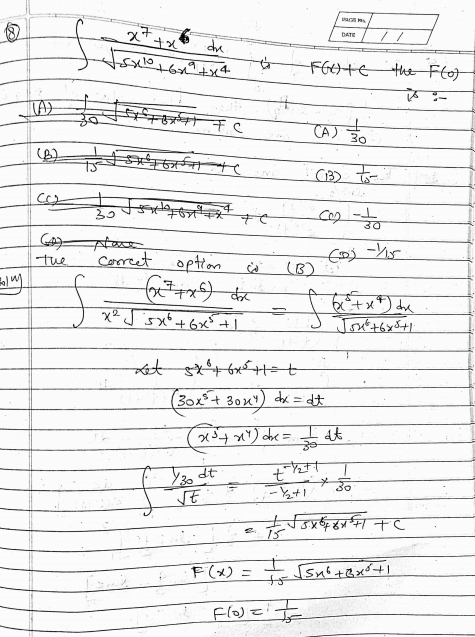 PAGE No.
DATE / /
(8) ∫ x^7 + x^6 dx / √5x^10 + 6x^9 + x^4 is F(x) + C the F(0)
is :-
(A) 1/30 √5x^6 + 6x^5 + 1 + C
(A) 1/30
(B) 1/15 √5x^6 + 6x^5 + 1 + C
(B) 1/15
(C) 1/30 √5x^10 + 6x^9 + x^4 + C
(C) -1/30
(D) None
(D) -1/15
the correct option is (B)
Sol^n)
∫ (x^7 + x^6) dx / x^2 √5x^6 + 6x^5 + 1 = ∫ (x^5 + x^4) dx / √5x^6 + 6x^5 + 1
Let 5x^6 + 6x^5 + 1 = t
(30x^5 + 30x^4) dx = dt
(x^5 + x^4) dx = 1/30 dt
∫ 1/30 dt / √t = t^(-1/2+1) / -1/2+1 × 1/30
= 1/15 √5x^6 + 6x^5 + 1 + C
F(x) = 1/15 √5x^6 + 6x^5 + 1
F(0) = 1/15